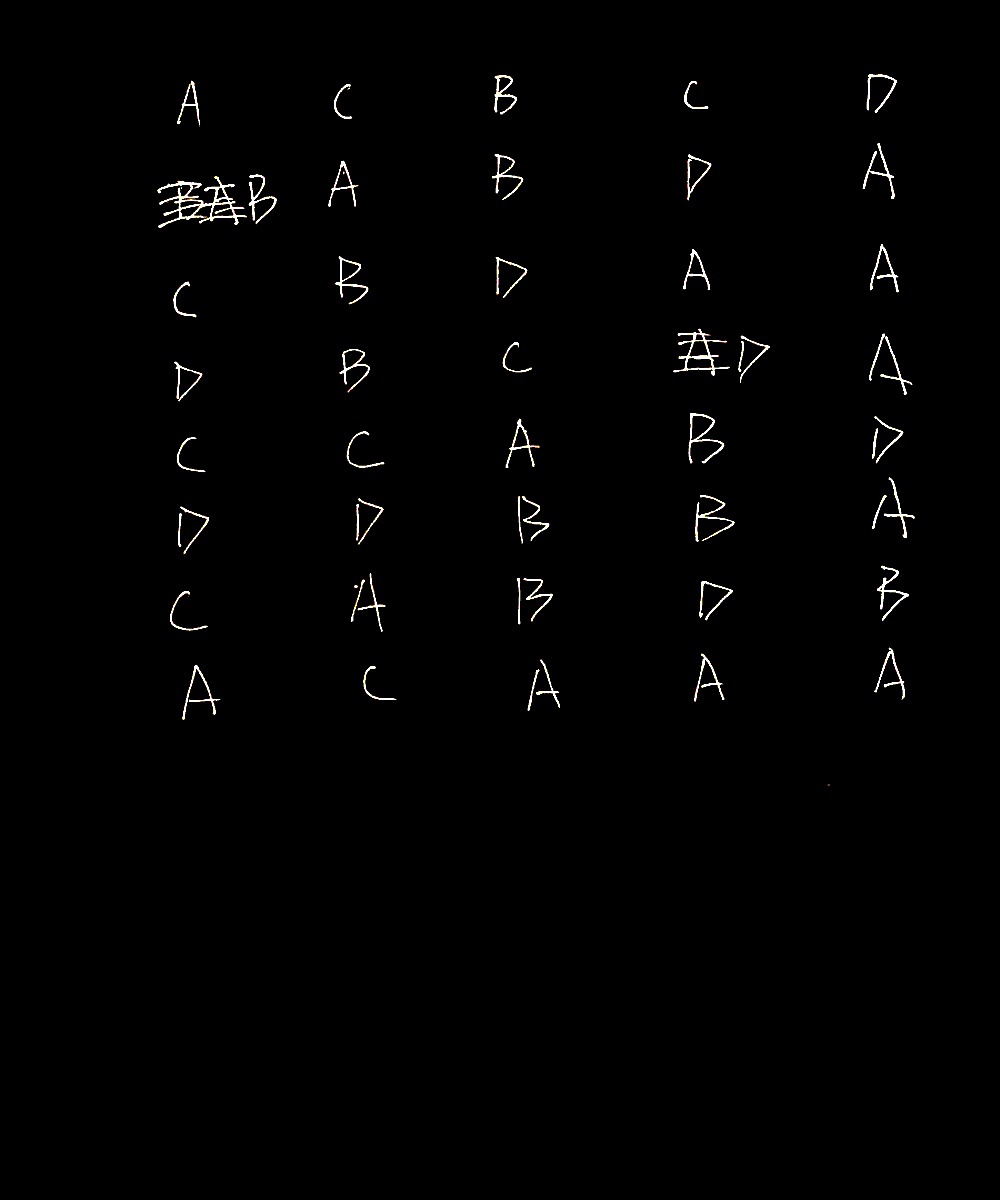 A C B C D
B A B D A
C B D A A
D B C D A
C C A B D
D D B B A
C A B D B
A C A A A